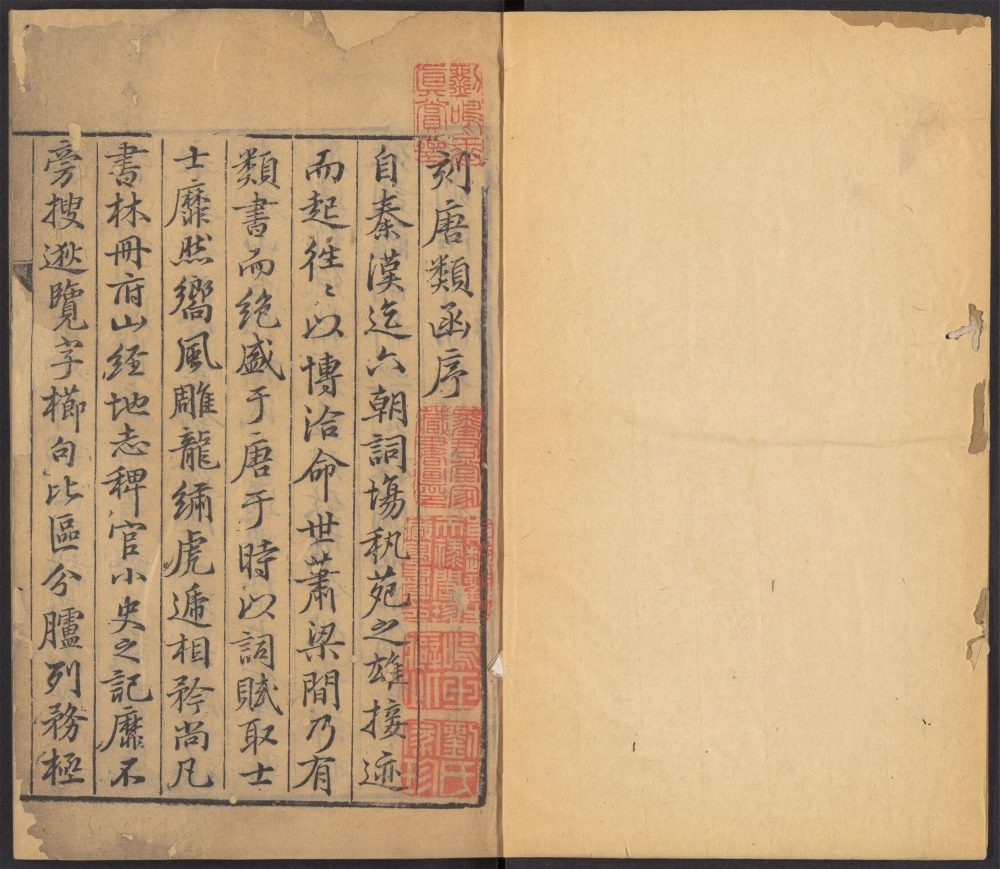 刻唐類函序
自秦漢迄六朝詞塲秇苑之雄接迹
而起徃〻以博洽命世蕭梁間乃有
類書而絶盛于唐于時以詞賦取士
士靡然嚮風雕龍繡虎遞相矜尚凡
書林冊府山經地志稗官小史之記靡不
旁搜逖覽字櫛句比區分臚列務極
劉氏
家珍